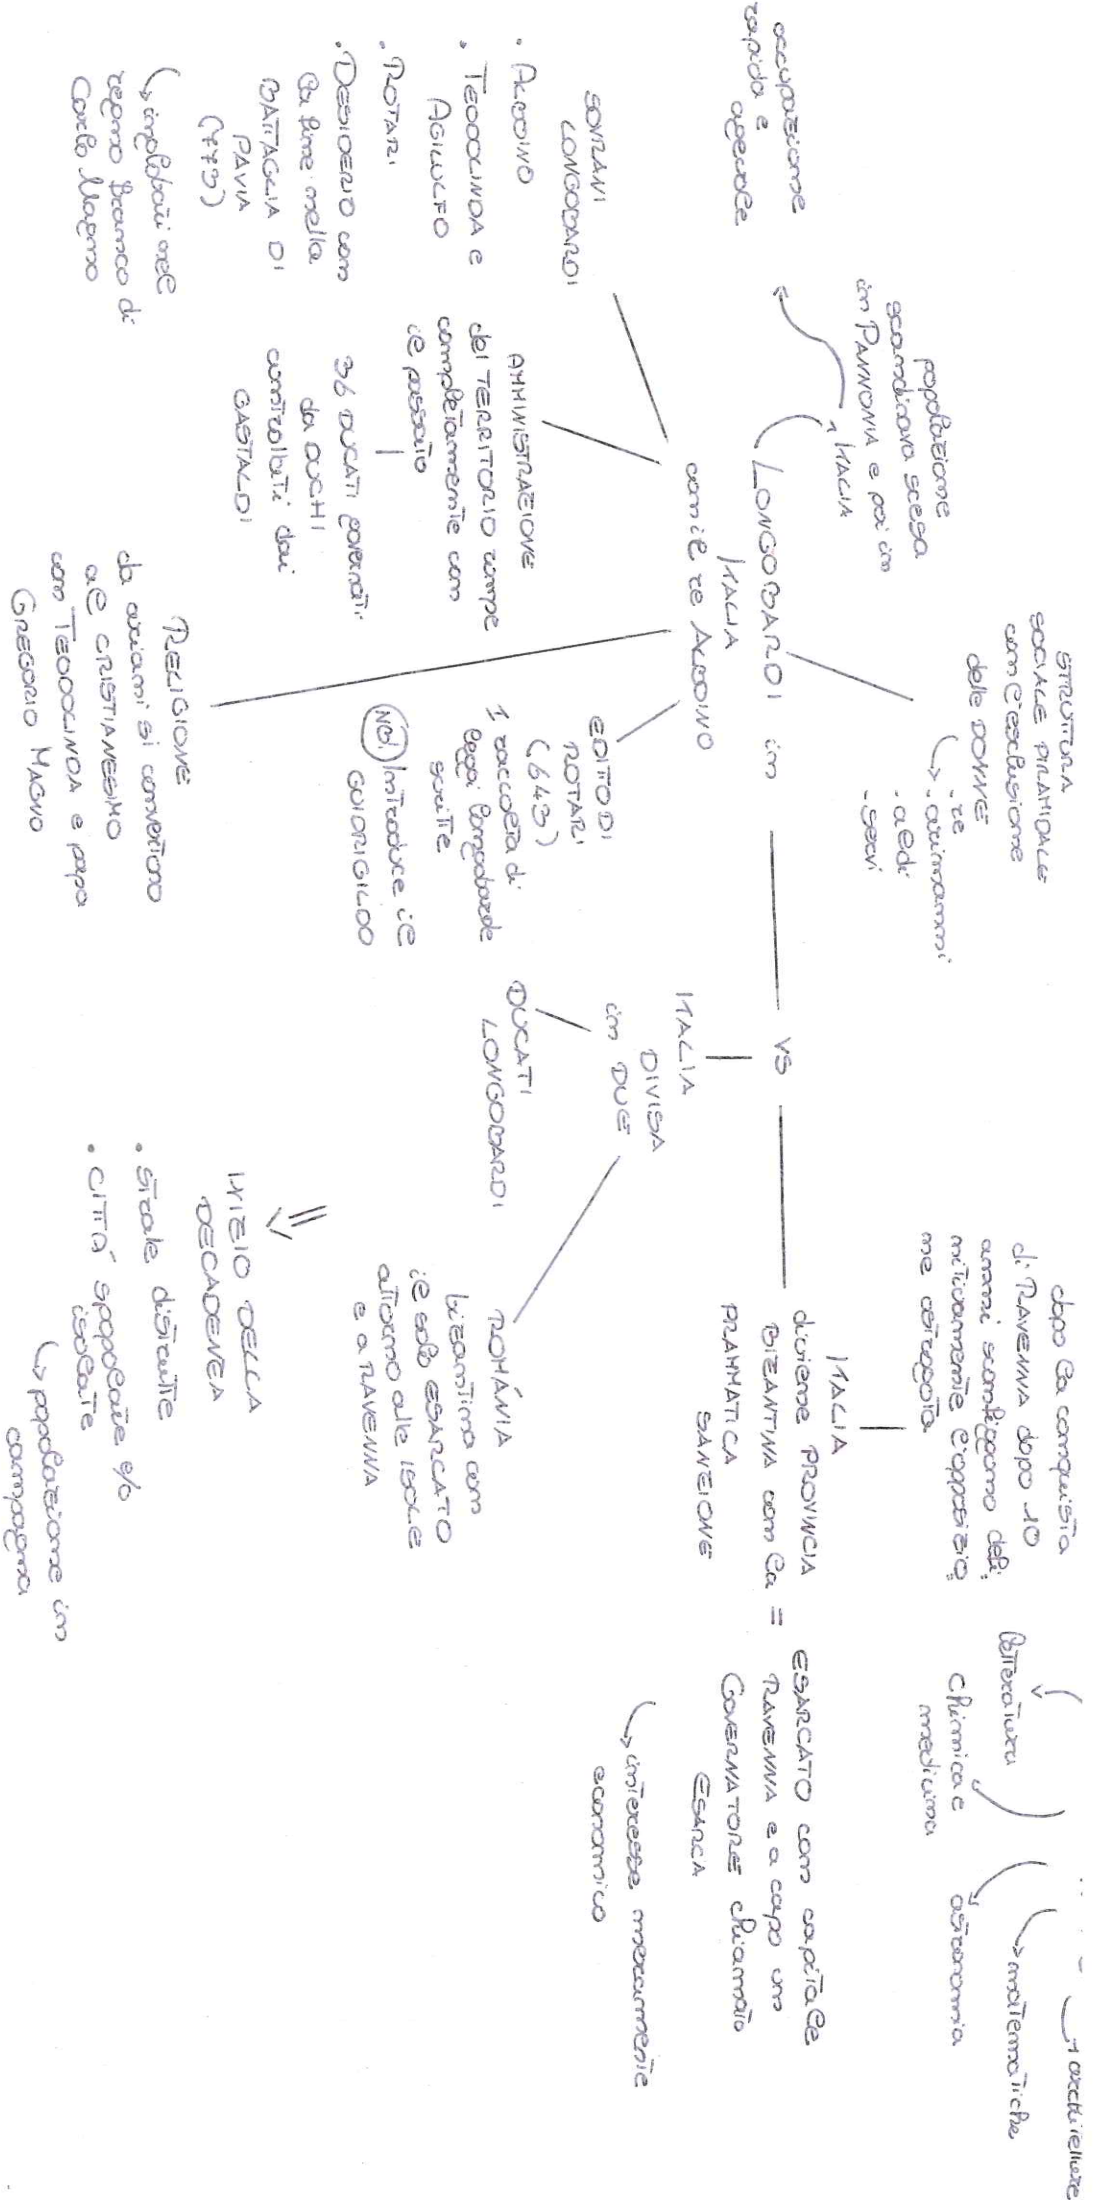 occupazione
rapida e
agevole
popolazione
scandinava scesa
in PANNONIA e poi in
ITALIA
STRUTTURA
SOCIALE PIRAMIDALE
con l'esclusione
delle DONNE
. re
. arimanni
. aldi
. servi
LONGOBARDI in
ITALIA
con il re ALBOINO
SOVRANI
LONGOBARDI
. ALBOINO
. TEODOLINDA e
AGILULFO
. ROTARI
. DESIDERIO con
la fine nella
BATTAGLIA DI
PAVIA
(773)
inglobati nel
regno franco di
Carlo Magno
AMMINISTRAZIONE
del TERRITORIO rompe
completamente con
il passato
36 DUCATI governati
da DUCHI
controllati dai
GASTALDI
RELIGIONE
da ariani si convertono
al CRISTIANESIMO
con TEODOLINDA e papa
GREGORIO MAGNO
EDITTO DI
ROTARI
(643)
1 raccolta di
leggi longobarde
scritte
NB! Introduce il
GUIDRIGILDO
VS
ITALIA
DIVISA
in DUE
DUCATI
LONGOBARDI
ROMÁNIA
bizantina con
il solo ESARCATO
attorno alle ISOLE
e a RAVENNA
INIZIO DELLA
DECADENZA
. strade distrutte
. CITTÀ spopolate e/o
isolate
popolazione in
campagna
dopo la conquista
di RAVENNA dopo 10
anni sconfiggono defi-
nitivamente l'opposizio-
ne ostrogota
ITALIA
diviene PROVINCIA
BIZANTINA con la =
PRAMMATICA
SANZIONE
ESARCATO con capitale
RAVENNA e a capo un
GOVERNATORE chiamato
ESARCA
interesse meramente
economico
letteratura
chimica e
medicina
astronomia
matematiche
architetture